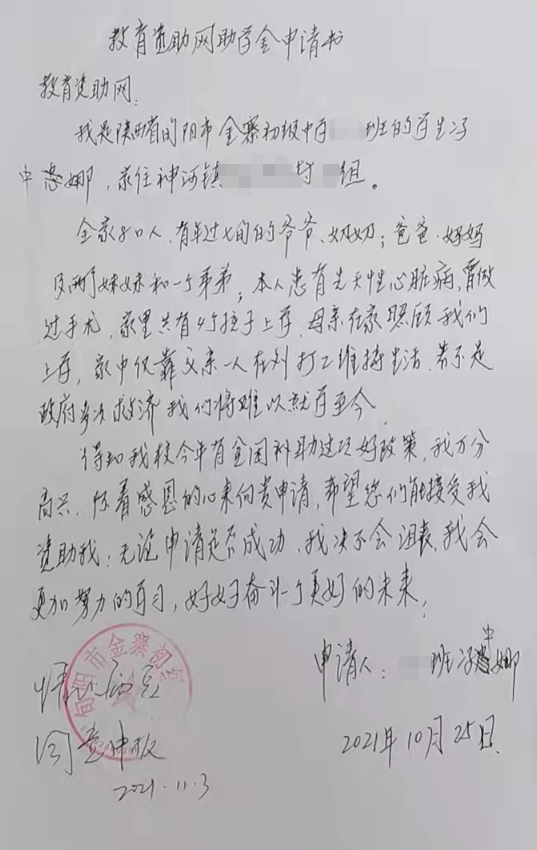 教育资助网助学金申请书
教育资助网:
我是陕西省旬阳市金寨初级中学 班的学生冯
忠娜，家住神河镇 村 组。
全家8口人，有年过七旬的爷爷、奶奶；爸爸·妈妈
及两个妹妹和一个弟弟；本人患有先天性心脏病，曾做
过手术，家里共有4个孩子上学，母亲在家照顾我们
上学，家中仅靠父亲一人在外打工维持生活，若不是
政府多次救济我们将难以就学至今。
得知我校今年有贫困补助这项好政策，我万分
高兴，怀着感恩的心来向贵申请，希望您们能接受我
资助我；无论申请是否成功，我决不会沮丧，我会
更加努力的学习，好好奋斗个更好的未来；
申请人： 班冯 娜
2021年10月25日
旬阳市金寨初级
情况属实
同意申报
2021.11.3